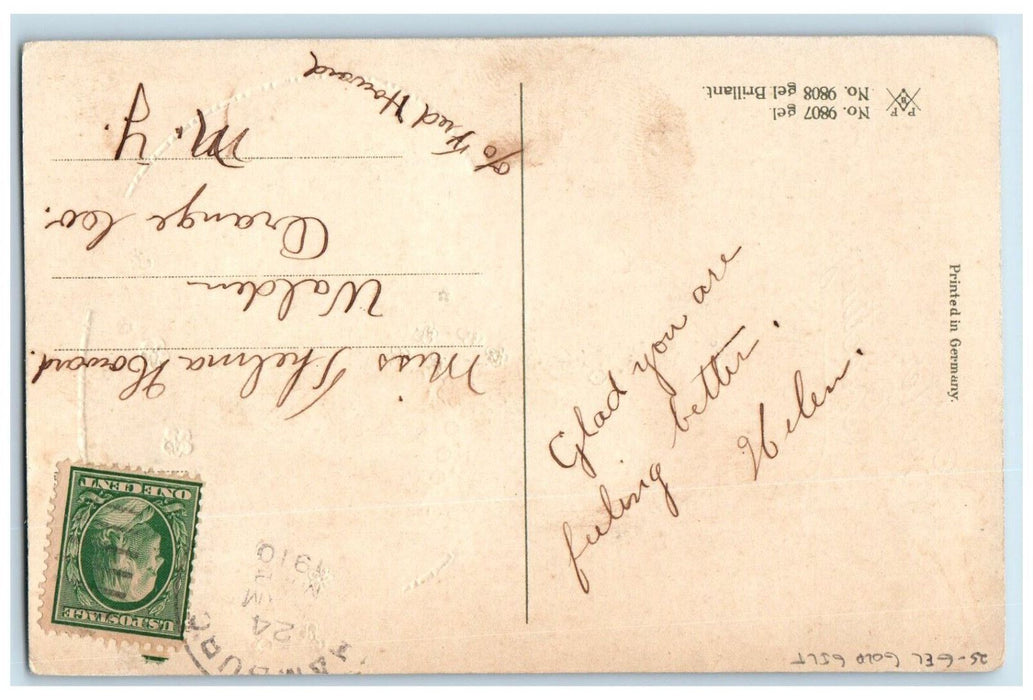 Glad you are
feeling better.
Helen.
Miss Thelma Howard.
Walden
Orange Co.
N. Y.
c/o Fred Howard
P F B
No. 9807 gel
No. 9808 gel Brillant.
Printed in Germany.
U.S. POSTAGE
ONE CENT
24
1910